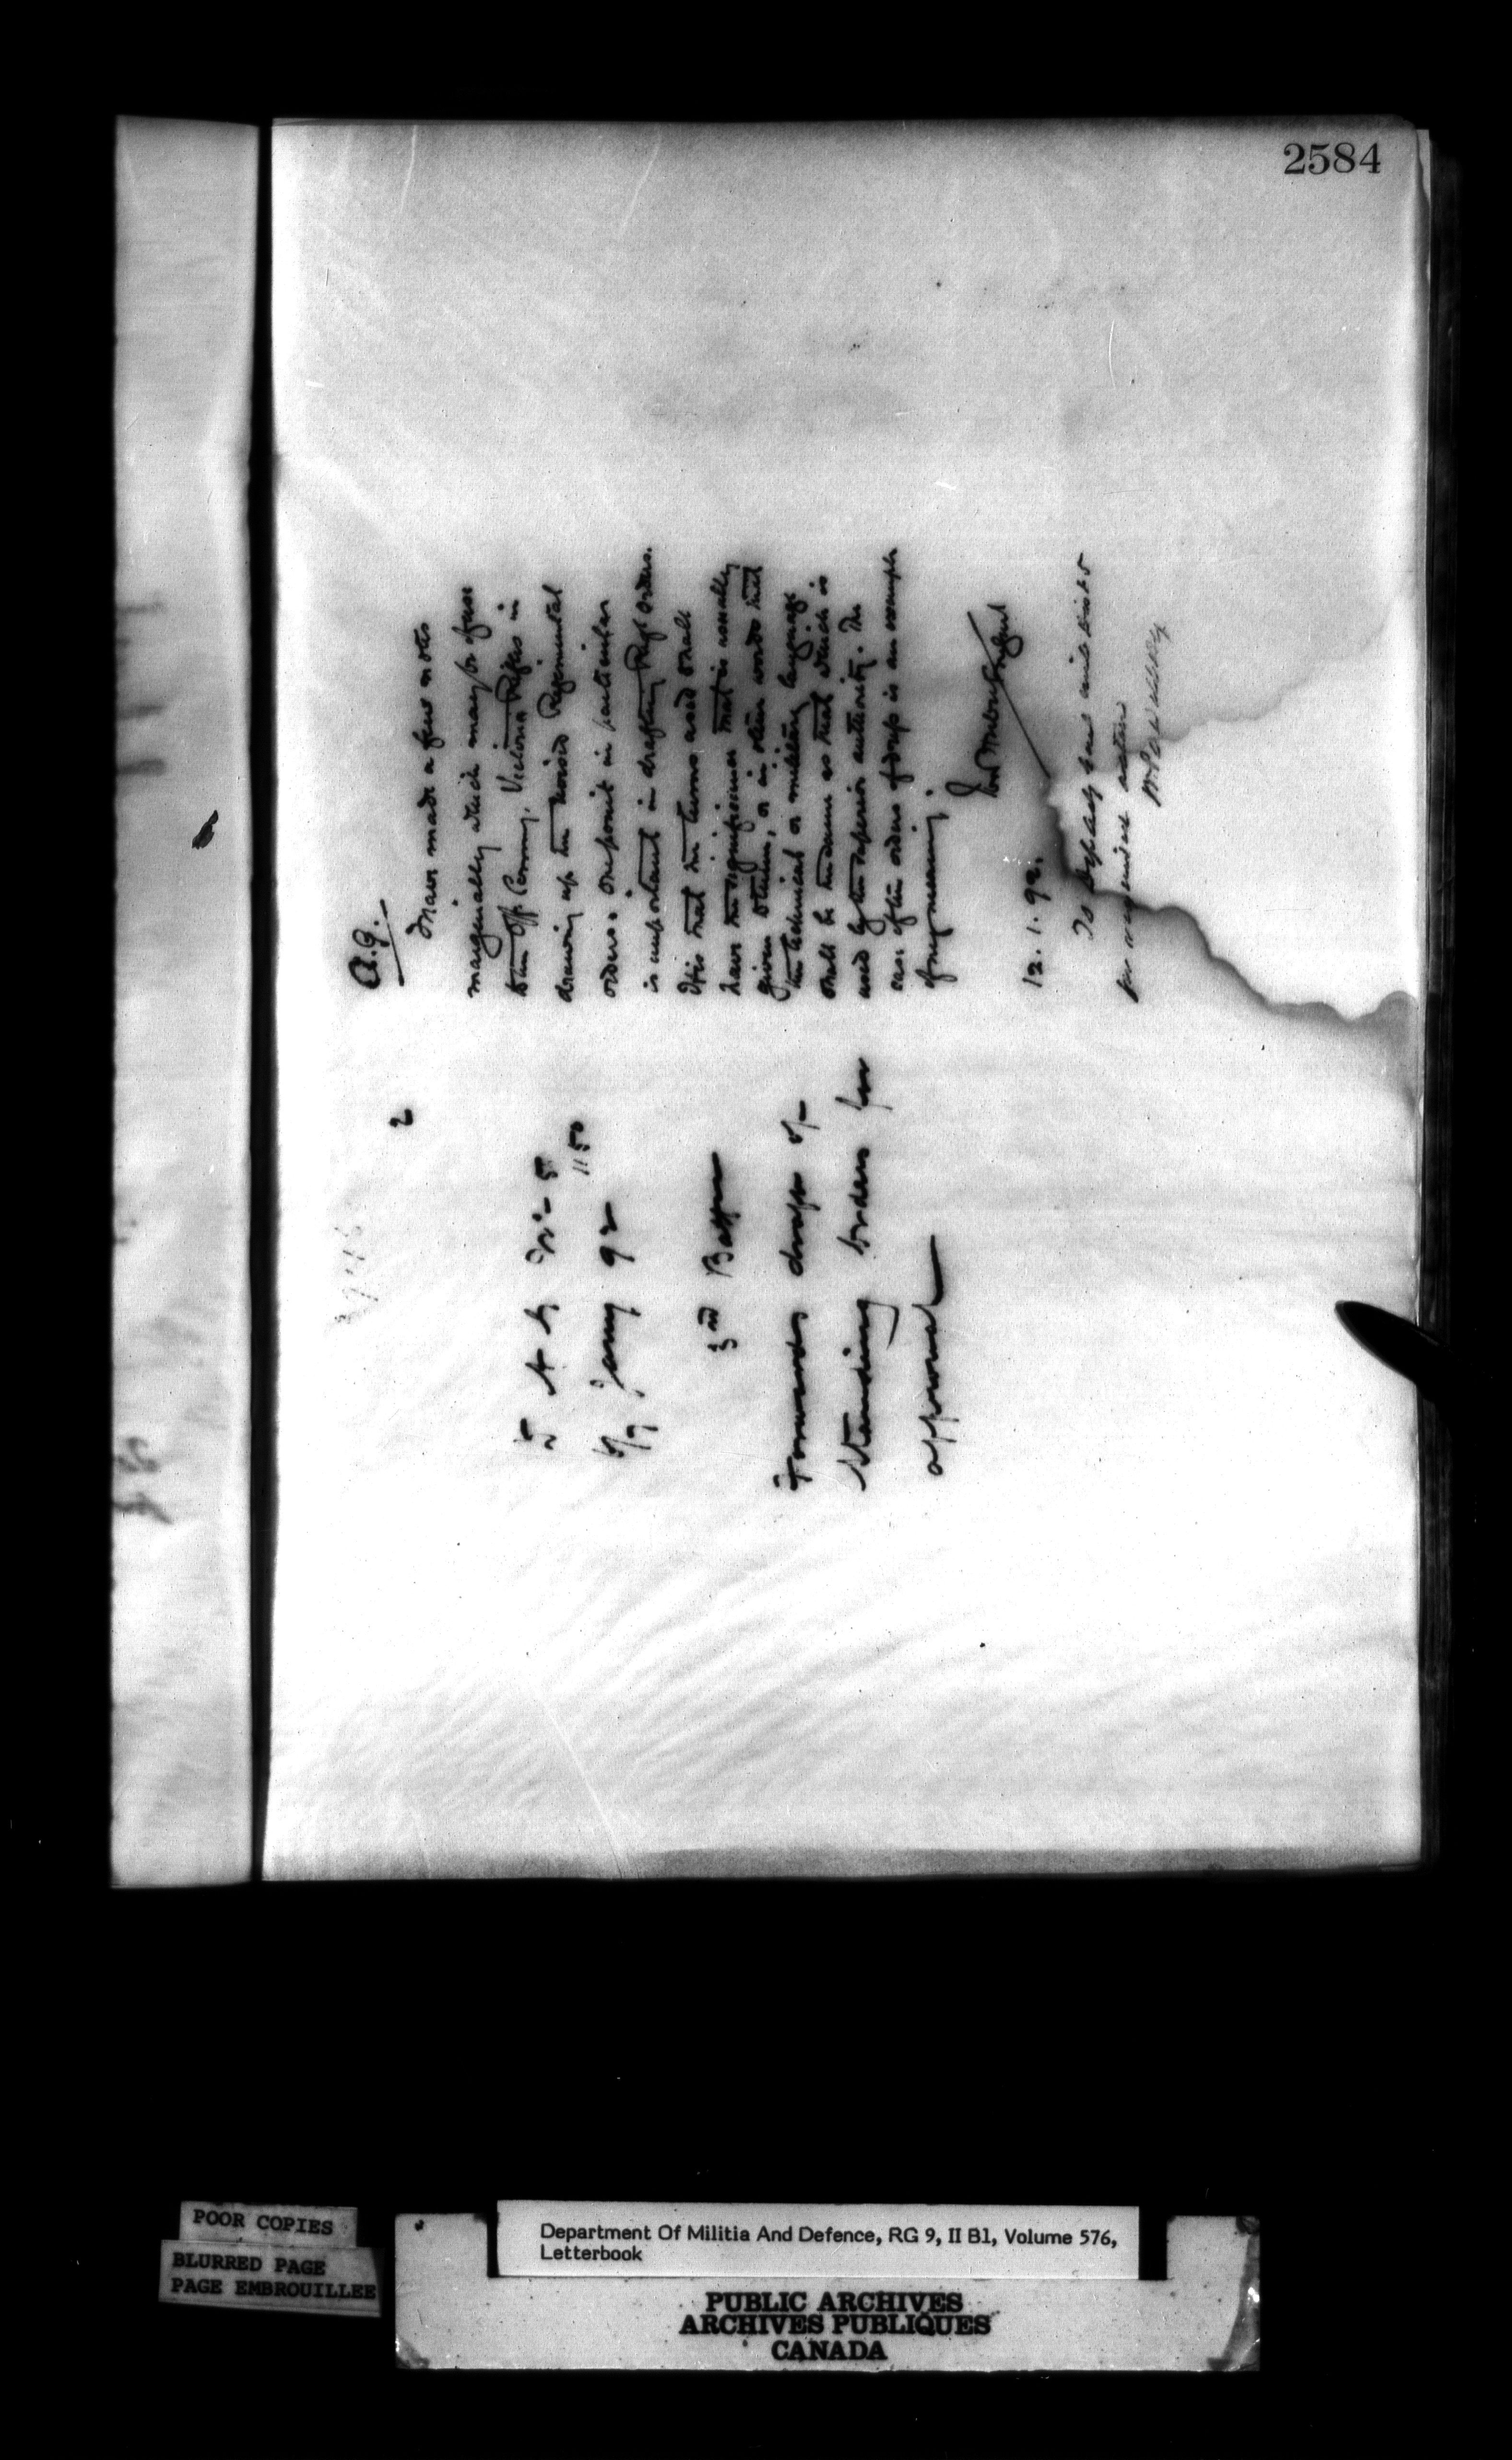 2584
2
D A G No 5
1150
5/7 Jany 92
3rd Battn
Forwards draft of
Standing Orders for
approval
A.G.
I have made a few notes
marginally which may be of use
to the Off. Commg. Victoria Rifles in
drawing up the revised Regimental
orders: one point in particular
is important in drafting Regt orders.
It is that the terms used shall
have the significance that is usually
given them, or in other words that
the technical or military language
shall be the same as that which is
used by the superior authority. The
case of the orders of dress is an example
of my meaning;
12. 1. 92.
To Deputy
for
POOR COPIES
BLURRED PAGE
PAGE EMBROUILLEE
Department Of Militia And Defence, RG 9, II B1, Volume 576,
Letterbook
PUBLIC ARCHIVES
ARCHIVES PUBLIQUES
CANADA